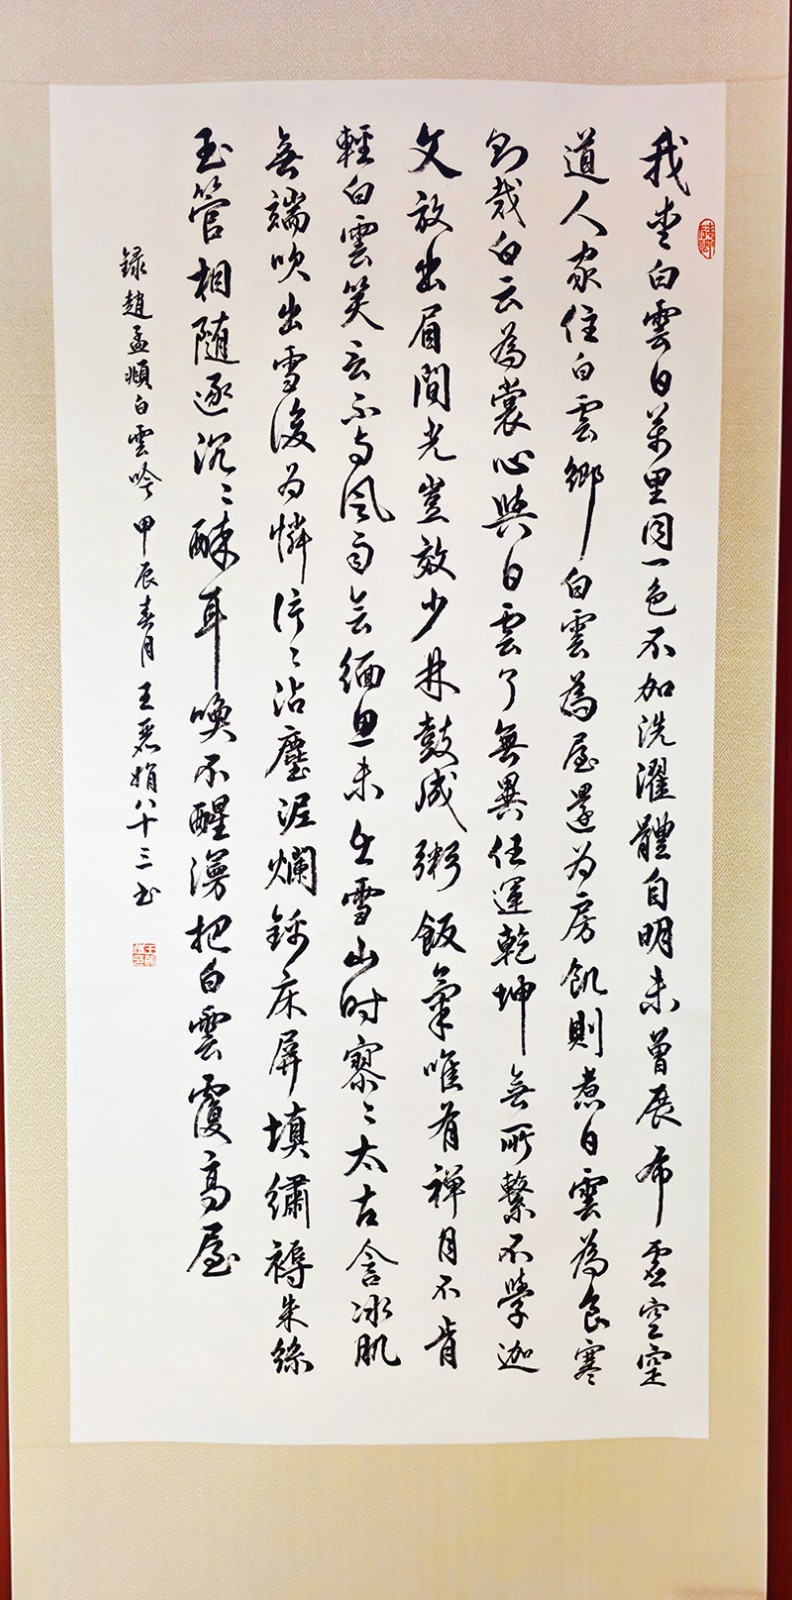 我愛白雲白萬里同一色不加洗濯體自明未曾展布虛空空
道人家住白雲鄉白雲為屋還為房飢則煮白雲為食寒
則裁白云為裳心與白雲了無異任運乾坤無所繫不學迦
文放出眉間光豈效少林鼓成粥飯氣唯有禪月不肯
輕白雲笑言不与風雨会緬思未生雪山时寥〻太古含冰肌
無端吹出雪後为憐片〻沾塵泥爛錦床屏填繡褥朱絲
玉管相随逐沉〻酥耳喚不醒漫把白雲覆高屋
録趙孟頫白雲吟甲辰春月王惠娟八十三书